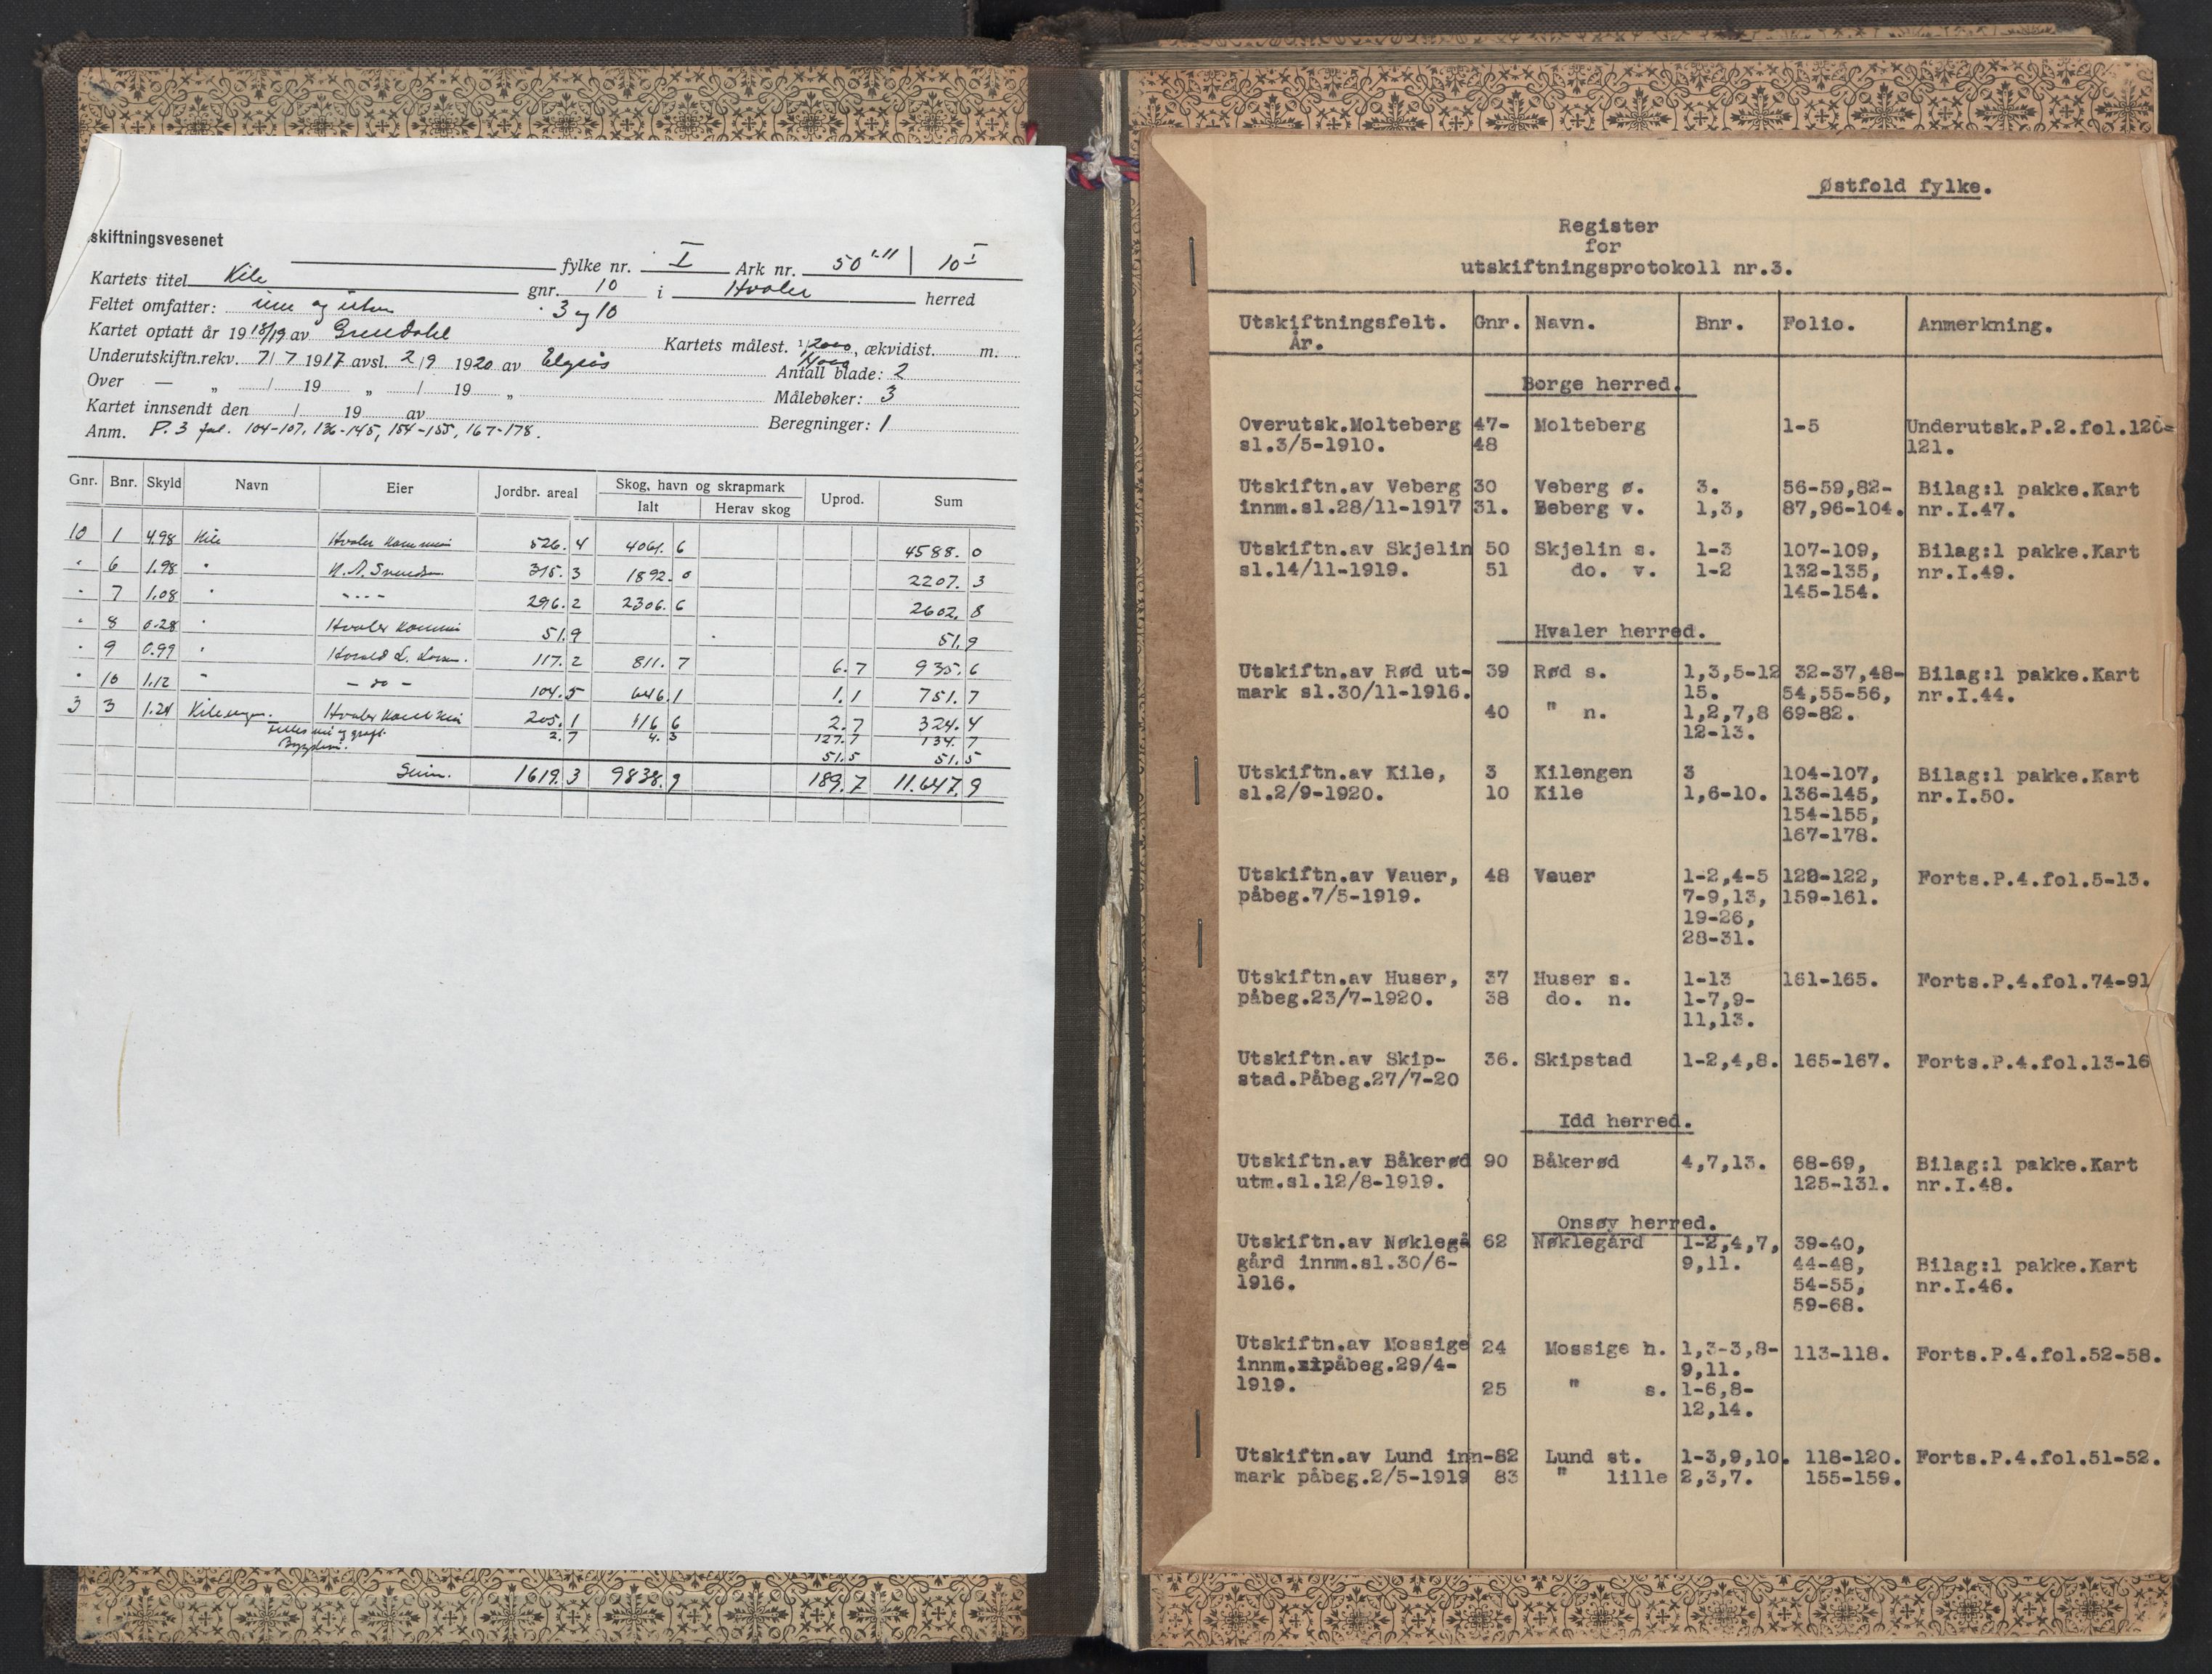 skiftningsvesenet
fylke nr. I Ark nr. 50 I-II | 10 I
Kartets titel Kile gnr. 10 i Hvaler herred
Feltet omfatter: inn og utm 3 og 10
Kartet optatt år 1918/19 av Grendahl Kartets målest. 1/2000, ækvidist. m.
Underutskiftn.rekv. 7/7 1917 avsl. 2/9 1920 av Antall blade: 2
Over — „ / 19 „ / 19 „ Målebøker: 3
Kartet innsendt den / 19 av Beregninger: 1
Anm. P. 3 fol. 104-107, 136-145, 154-155, 167-178.
Gnr. Bnr. Skyld Navn Eier Jordbr. areal Skog, havn og skrapmark Uprod. Sum
Ialt Herav skog
10 1 4.98 Kile Hvaler Kommune 526.4 4061.6 4588.0
" 6 1.98 " 315.3 1892.0 2207.3
" 7 1.08 " -"- 296.2 2306.6 2602.8
" 8 0.28 " Hvaler Kommune 51.9 51.9
" 9 0.99 " Harald L. 117.2 811.7 6.7 935.6
" 10 1.12 " - do - 104.5 646.1 1.1 751.7
3 3 1.24 Kilengen. Hvaler Kommune 205.1 116.6 2.7 324.4
2.7 4.3 127.7 134.7
51.5 51.5
Sum. 1619.3 9838.9 189.7 11.647.9
Østfold fylke.
Register
for
utskiftningsprotokoll nr.3.
Utskiftningsfelt. Gnr. Navn. Bnr. Folio. Anmerkning.
År.
Borge herred.
Overutsk.Molteberg 47- Molteberg 1-5 Underutsk.P.2.fol.120-
sl.3/5-1910. 48 121.
Utskiftn.av Veberg 30 Veberg ø. 3. 56-59,82- Bilag:1 pakke.Kart
innm.sl.28/11-1917 31. Beberg v. 1,3, 87,96-104. nr.I.47.
Utskiftn.av Skjelin 50 Skjelin s. 1-3 107-109, Bilag:1 pakke.Kart
sl.14/11-1919. 51 do. v. 1-2 132-135, nr.I.49.
145-154.
Hvaler herred.
Utskiftn.av Rød ut- 39 Rød s. 1,3,5-12 32-37,48- Bilag:1 pakke.Kart
mark sl.30/11-1916. 15. 54,55-56, nr.I.44.
40 " n. 1,2,7,8 69-82.
12-13.
Utskiftn.av Kile, 3 Kilengen 3 104-107, Bilag:1 pakke.Kart
sl.2/9-1920. 10 Kile 1,6-10. 136-145, nr.I.50.
154-155,
167-178.
Utskiftn.av Vauer, 48 Vauer 1-2,4-5 120-122, Forts.P.4.fol.5-13.
påbeg.7/5-1919. 7-9,13, 159-161.
19-26,
28-31.
Utskiftn.av Huser, 37 Huser s. 1-13 161-165. Forts.P.4.fol.74-91
påbeg.23/7-1920. 38 do. n. 1-7,9-
11,13.
Utskiftn.av Skip- 36. Skipstad 1-2,4,8. 165-167. Forts.P.4.fol.13-16
stad.Påbeg.27/7-20
Idd herred.
Utskiftn.av Båkerød 90 Båkerød 4,7,13. 68-69, Bilag:1 pakke.Kart
utm.sl.12/8-1919. 125-131. nr.I.48.
Onsøy herred.
Utskiftn.av Nøklegå 62 Nøklegård 1-2,4,7, 39-40,
gård innm.sl.30/6- 9,11. 44-48, Bilag:1 pakke.Kart
1916. 54-55, nr.I.46.
59-68.
Utskiftn.av Mossige 24 Mossige h. 1,3-3,8- 113-118. Forts.P.4.fol.52-58.
innm.påbeg.29/4- 9,11.
1919. 25 " s. 1-6,8-
12,14.
Utskiftn.av Lund inn-82 Lund st. 1-3,9,10. 118-120. Forts.P.4.fol.51-52.
mark påbeg.2/5-1919 83 " lille 2,3,7. 155-159.